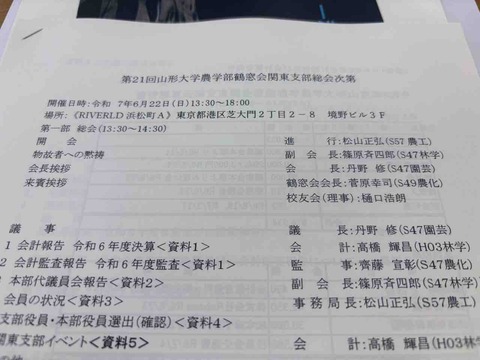 第21回山形大学農学部鶴窓会関東支部総会次第
開催日時:令和 7年6月22日(日)13:30~18:00
場所:《RIVERLD 浜松町A》東京都港区芝大門2丁目2-8 境野ビル3F
第一部 総会(13:30~14:30)
開 会 進 行:松山正弘(S57農工)
物故者への黙祷 副 会 長:篠原斉四郎(S47林学)
会長挨拶 会 長:丹野 修(S47園芸)
来賓挨拶 鶴窓会会長:菅原幸司(S49農化)
校友会(理事):樋口浩朗
議 事 議 長:丹野 修(S47園芸)
1 会計報告 令和6年度決算<資料1> 会 計:高橋 輝昌(H03林学)
2 会計監査報告 令和6年度監査<資料1> 監 事:齊藤 宣彰(S47農化)
本部代議員会報告<資料2> 副 会 長:篠原斉四郎(S47林学)
会員の状況<資料3> 事務局長:松山正弘(S57農工)
支部役員・本部役員選出(確認)<資料4>
関東支部イベント<資料5> 会 計:高橋 輝昌(H03林学)